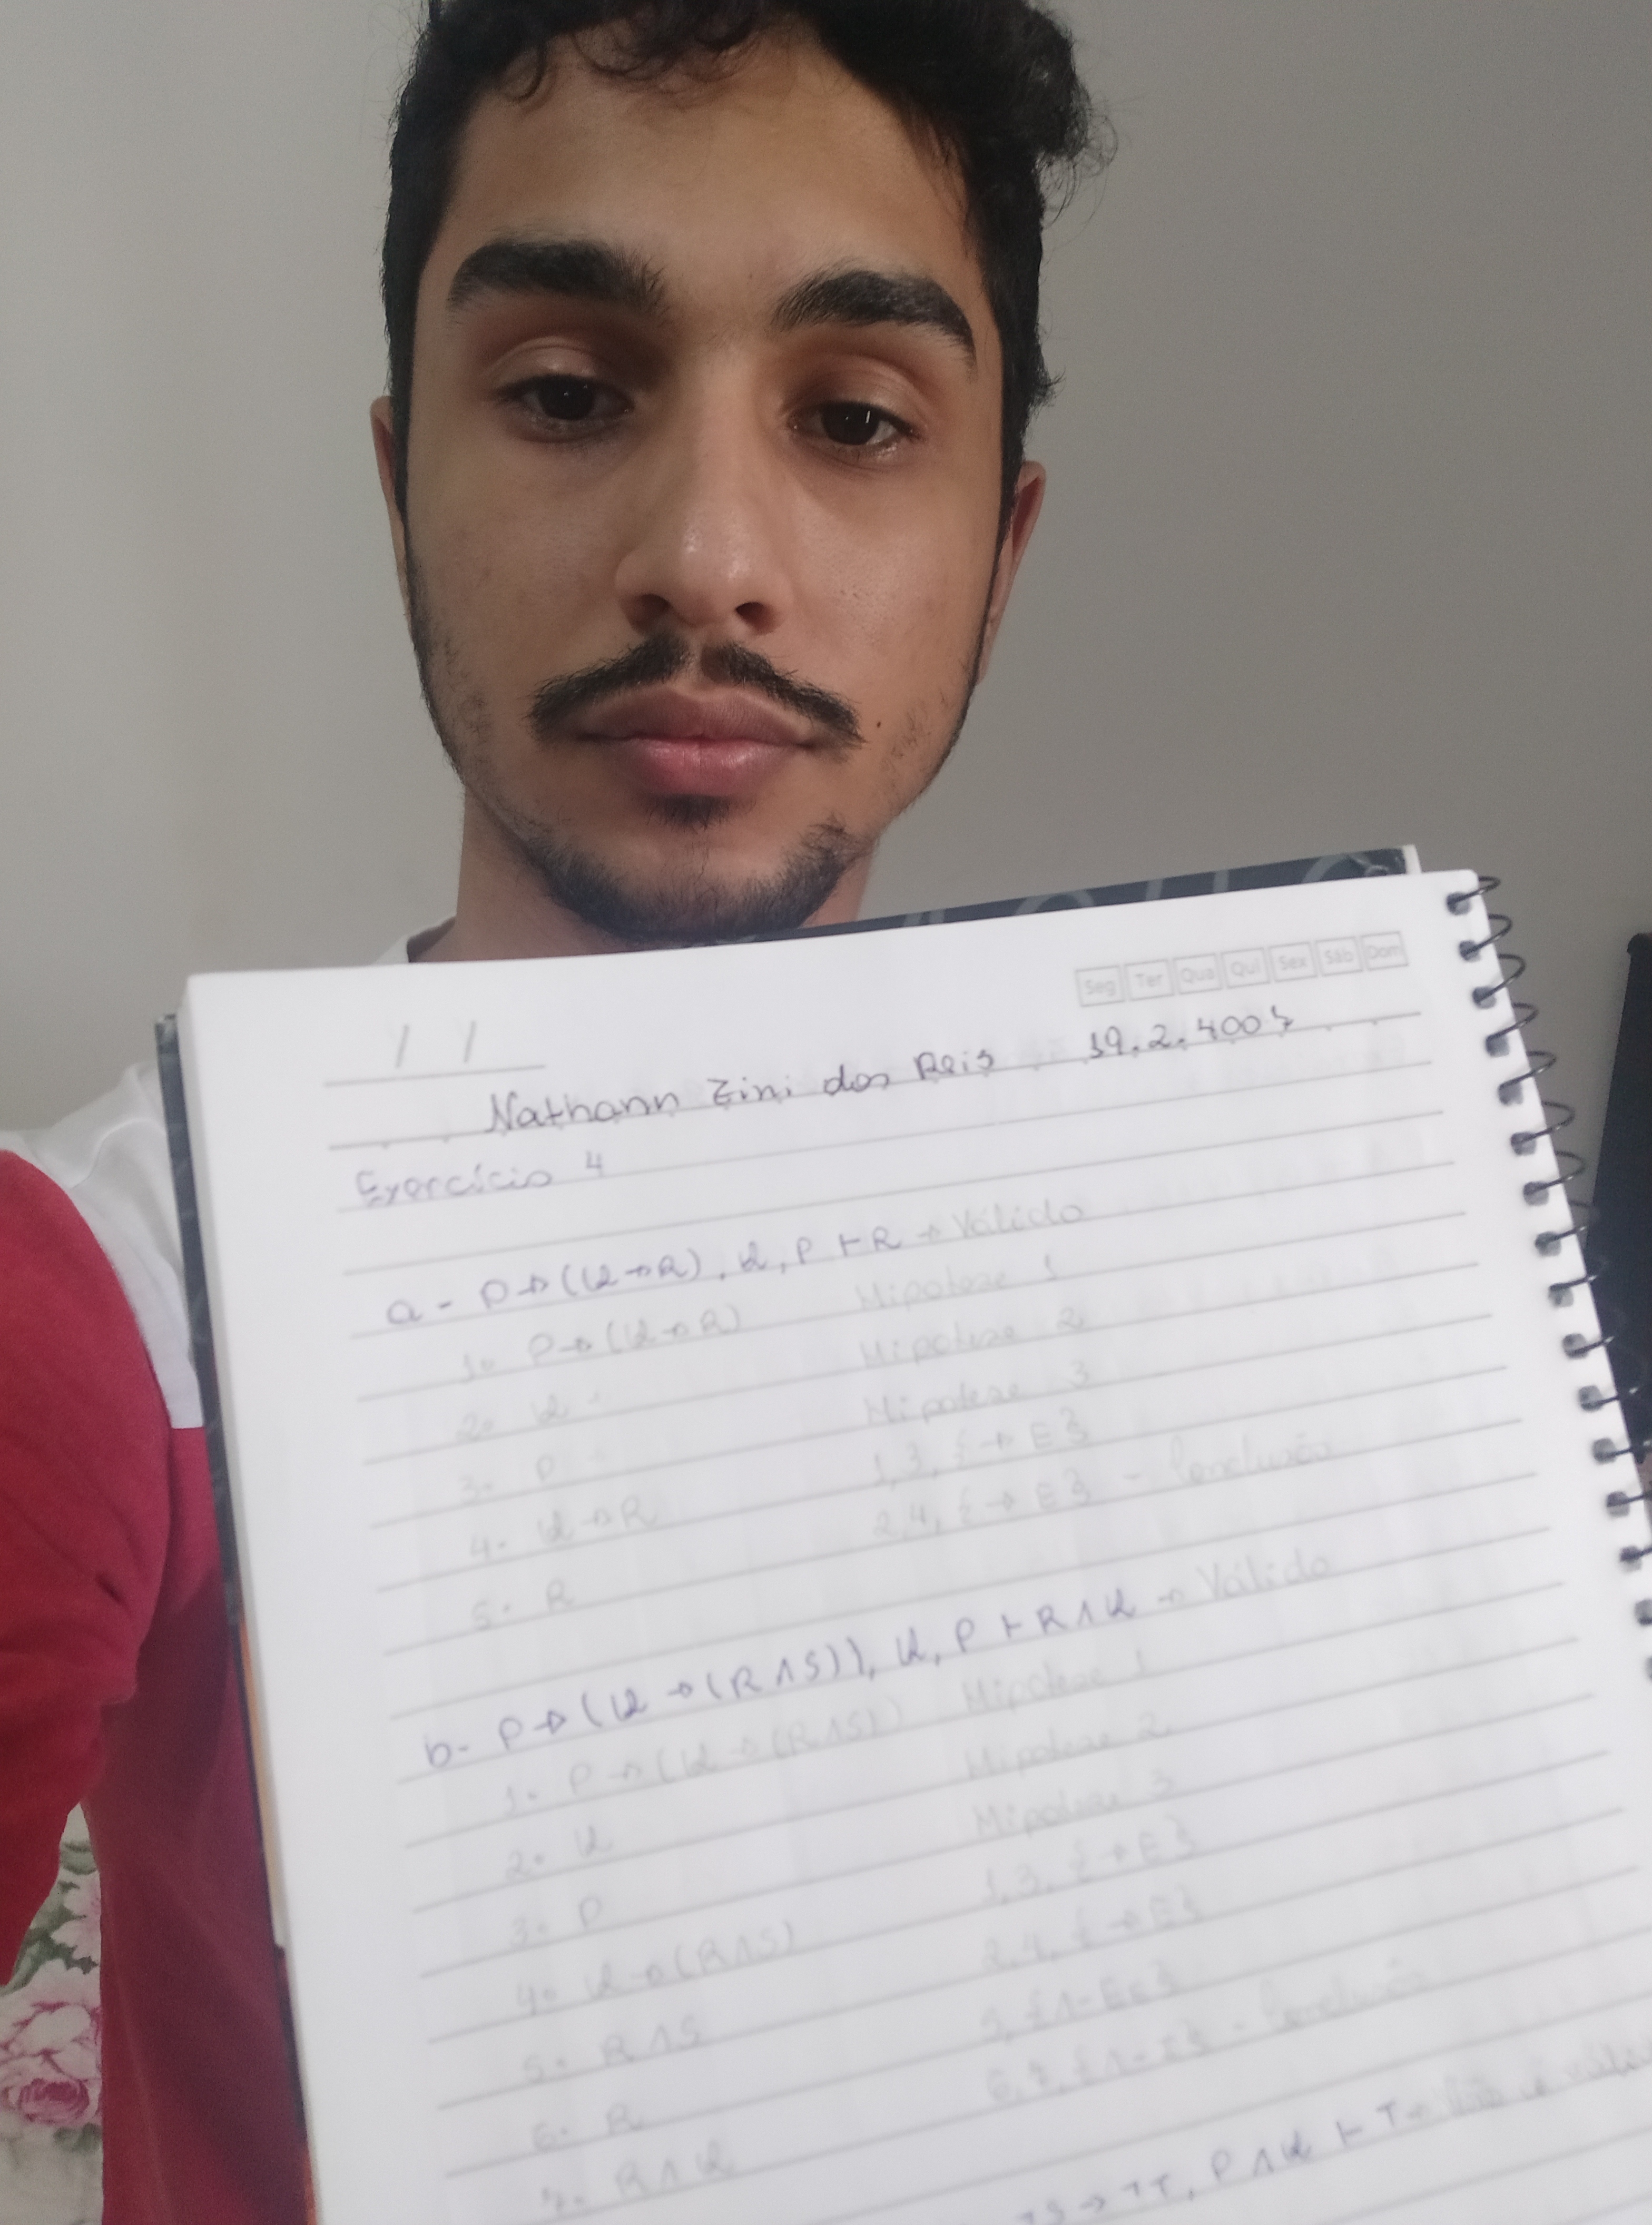 Seg Ter Qua Qui Sex Sáb Dom
/ /
Nathann Zini dos Reis 19.2.4007
Exercício 4
a- P→(Q→R), Q, P ⊢ R → Válido
1. P→(Q→R) Hipotese 1
2. Q Hipotese 2
3. P Hipotese 3
4. Q→R 1,3, {→E}
5. R 2,4, {→E} - Conclusão
b- P→(Q→(R∧S)), Q, P ⊢ R∧Q → Válido
1. P→(Q→(R∧S)) Hipotese 1
2. Q Hipotese 2
3. P Hipotese 3
4. Q→(R∧S) 1,3, {→E}
5. R∧S 2,4, {→E}
6. R 5, {∧-Ee}
7. R∧Q {∧-I} - Conclusão
¬S→¬T, P∧Q ⊢ T